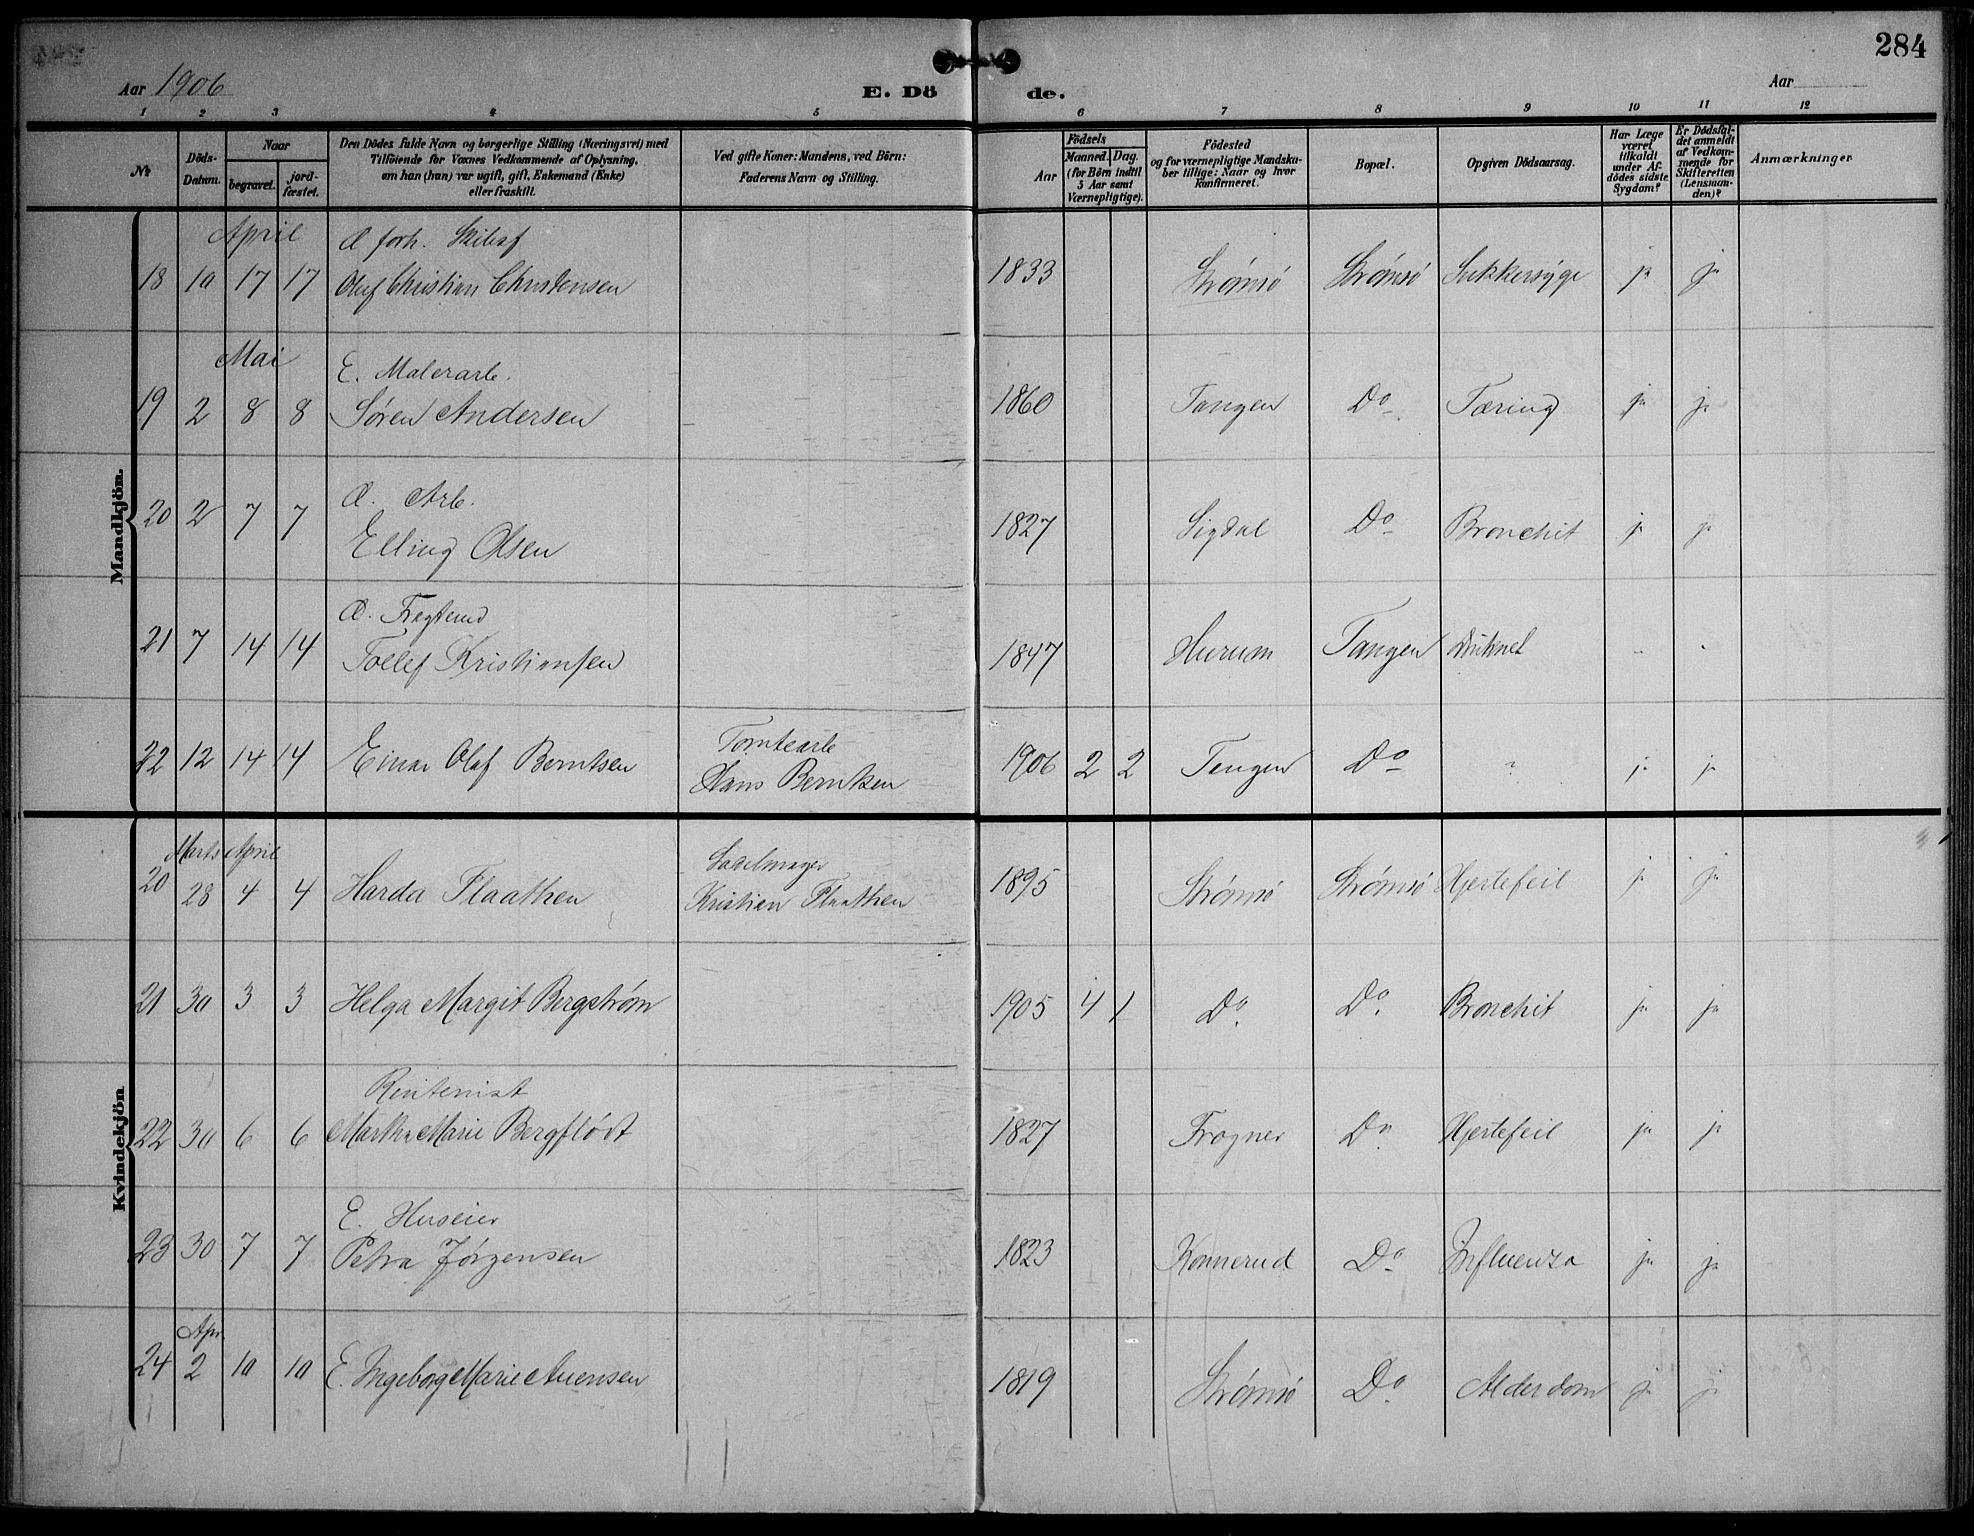 284
Aar 1906
E. Dö de.
Aar
1 2 3 4 5 6 7 8 9 10 11 12
№
Döds-Datum.
Naar
begravet.
jord-fæstet.
Den Dödes fulde Navn og borgerlige Stilling (Næringsvei) med
Tilföiende for Voxnes Vedkommende af Oplysning,
om han (hun) var ugift, gift, Enkemand (Enke)
eller fraskilt.
Ved gifte Koner: Mandens, ved Börn:
Faderens Navn og Stilling.
Födsels
Aar
Maaned. Dag.
(for Börn indtil
5 Aar samt
Værnepligtige).
Födested
og for værnepligtige Mandska-
ber tillige: Naar og hvor
konfirmeret.
Bopæl.
Opgiven Dödsaarsag.
Har Læge
været
tilkaldt
under Af-
dödes sidste
Sygdom?
Er Dödsfal-
det anmeldt
af Vedkom-
mende for
Skifteretten
(Lensman-
den)?
Anmærkninger
Mandkjön.
April Æ forh.
18 10 17 17 Oluf Christian Christensen 1833 Strømsø Strømsø Sukkersyge ja ja
Mai E. Malerarb.
19 2 8 8 Søren Andersen 1860 Tangen Do Tæring ja ja
Æ. Arb.
20 2 7 7 Elling Olsen 1827 Sigdal Do Bronchit ja ja
Æ.
21 7 14 14 Tollef Kristiansen 1847 Hurum Tangen Druknet " "
Tomtearb
22 12 14 14 Einar Olaf Berntsen Hans Berntsen 1906 2 2 Tangen Do ? ja ja
Kvindekjön
Marts April Sadelmager
20 28 4 4 Harda Flaathen Kristian Flaathen 1895 Strømsø Strømsø Hjertefeil ja ja
21 30 3 3 Helga Margit Bergstrøm 1905 4 1 Do. Do. Bronchit ja ja
Rentenist
22 30 6 6 Martha Marie Bergflødt 1827 Frogner Do. Hjertefeil ja ja
E. Huseier
23 30 7 7 Petra Jørgensen 1823 Konnerud Do Influenza ja ja
Apr.
24 2 10 10 E. Ingeborg Marie Auensen 1819 Strømsø Do. Alderdom ja ja